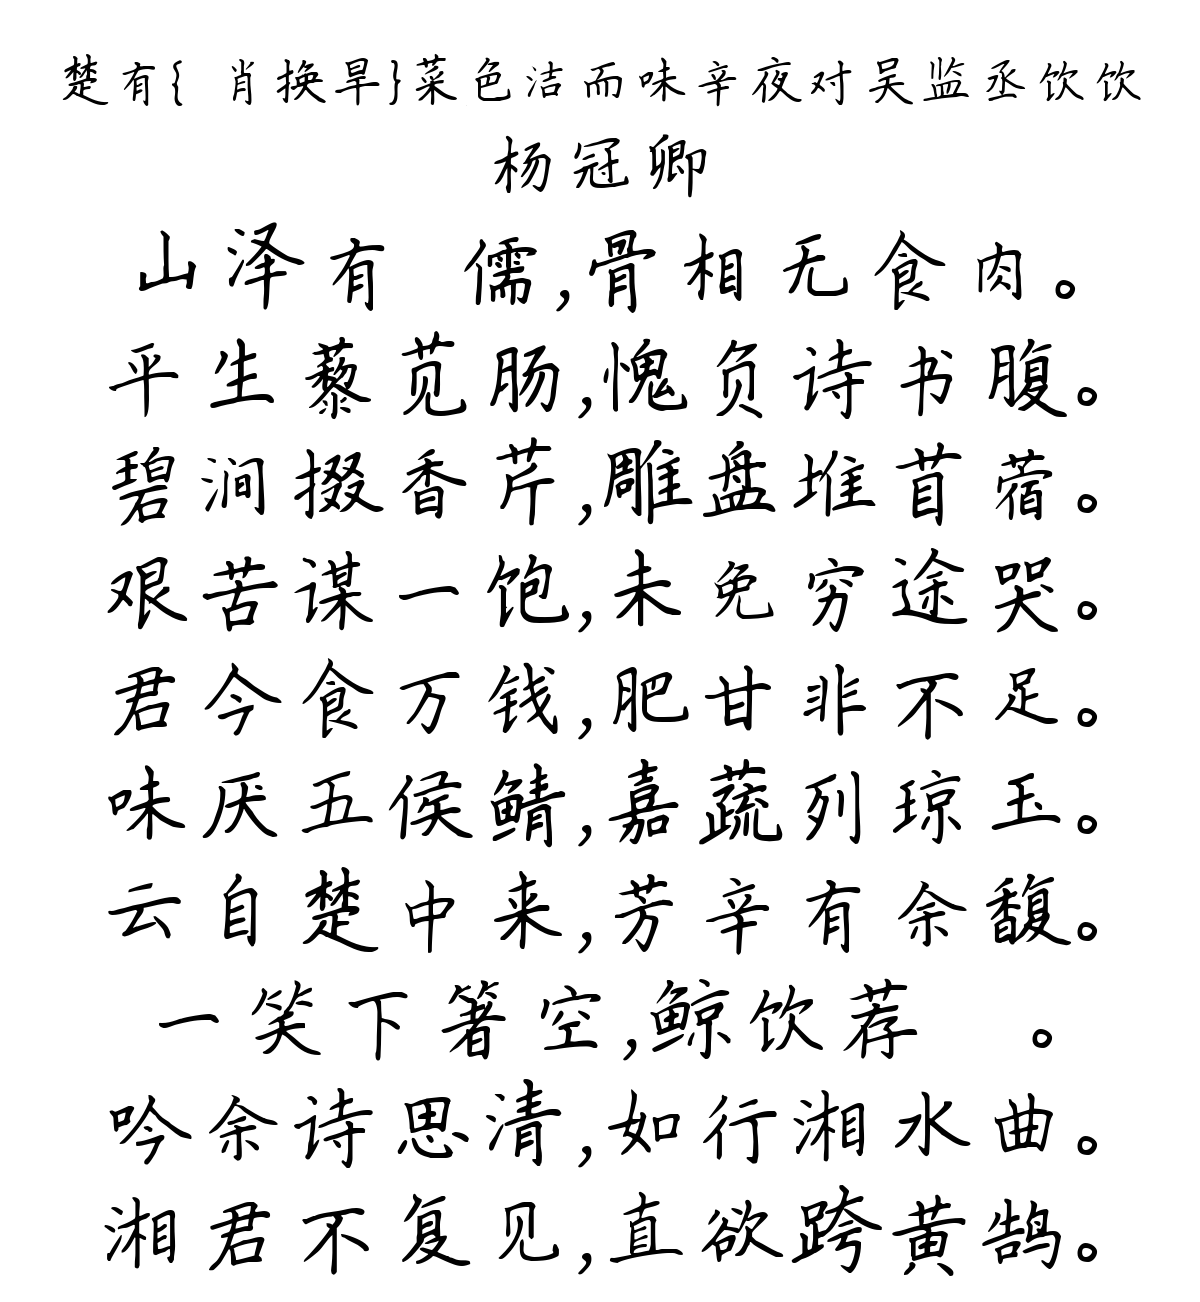 楚有{ 肖换旱}菜色洁而味辛夜对吴监丞饮饮
杨冠卿
山泽有 儒,骨相无食肉。
平生藜苋肠,愧负诗书腹。
碧涧掇香芹,雕盘堆苜蓿。
艰苦谋一饱,未免穷途哭。
君今食万钱,肥甘非不足。
味厌五侯鲭,嘉蔬列琼玉。
云自楚中来,芳辛有余馥。
一笑下箸空,鲸饮荐 。
吟余诗思清,如行湘水曲。
湘君不复见,直欲跨黄鹄。